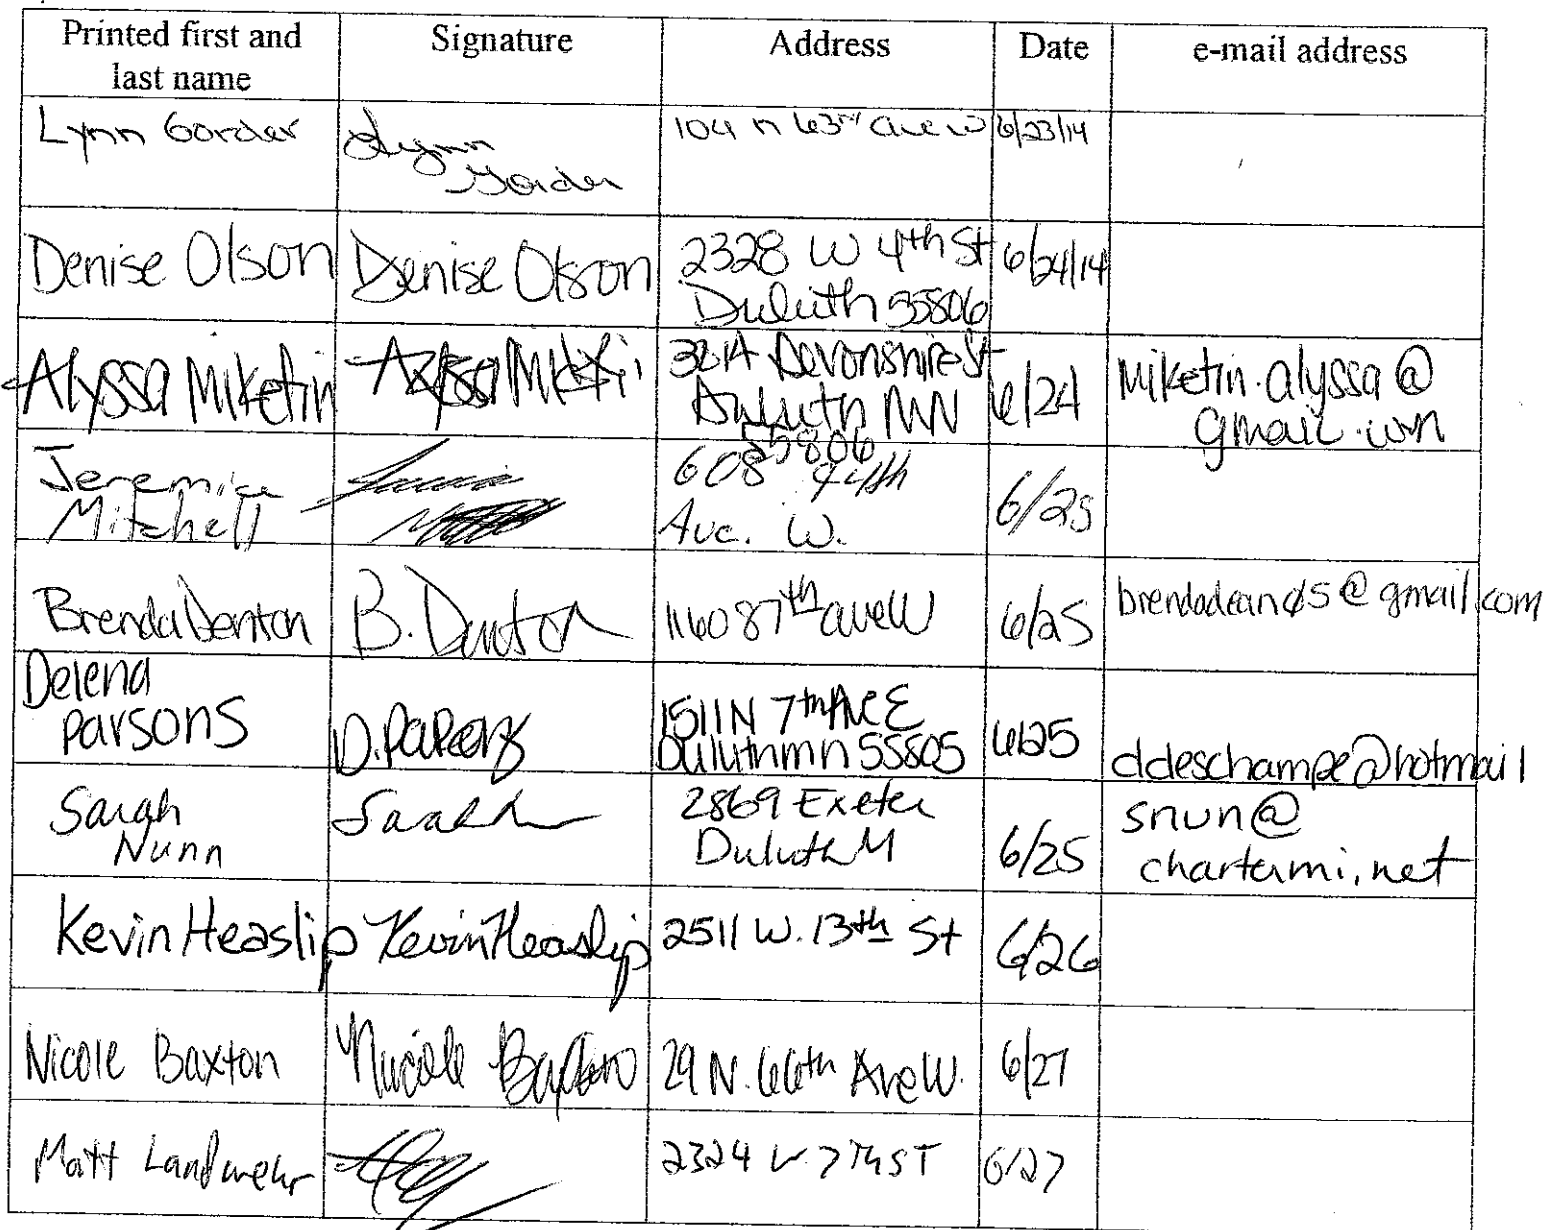 Printed first and
last name
Signature
Address
Date
e-mail address
Lynn Gorder
Lynn
Gorder
104 n 63rd ave w
6/23/14
Denise Olson
Denise Olson
2328 W 4th St
Duluth 55806
6/24/14
Alyssa Miketin
Alyssa Miketin
Devonshire St
Duluth MN
55806
6/24
Miketin.alyssa@
gmail.com
Mitchell
608
Ave. W.
6/25
Brenda Denton
B. Denton
87th ave W
6/25
brendadean05@gmail.com
Delena
Parsons
D. Parsons
1511 N 7th Ave E
Duluth mn 55805
6/25
ddeschampe@hotmail
Sarah
Nunn
2869 Exeter
Duluth M
6/25
snun@
chartermi.net
Kevin Heaslip
Kevin Heaslip
2511 W. 13th St
6/26
Nicole Baxton
Nicole Baxton
29 N. 66th Ave W.
6/27
Matt Landwehr
2324 W 7th ST
6/27